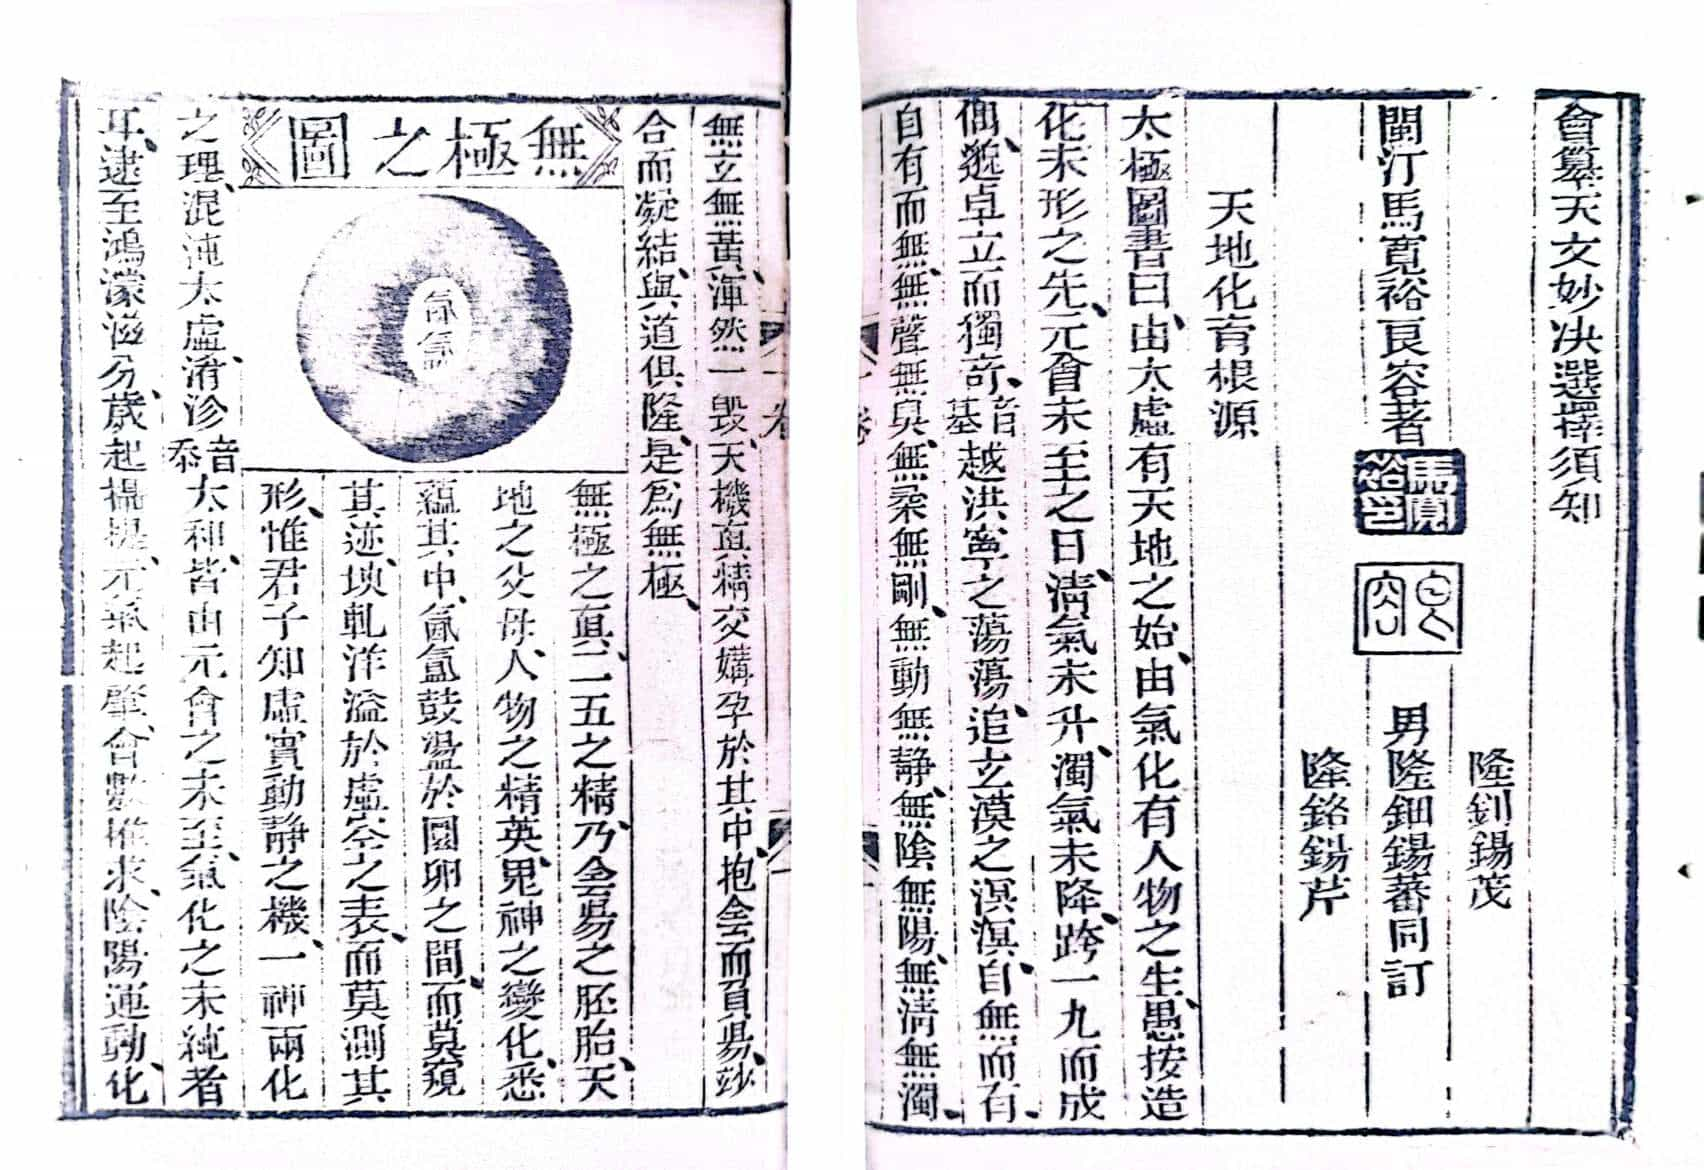 會纂天文妙决選擇須知
隆釗錫茂
閩汀馬寬裕良容著
馬寬裕印
良容
男隆鈿錫蕃同訂
隆鉻錫芹
天地化育根源
太極圖書曰、由太虛有天地之始、由氣化有人物之生、愚按造
化未形之先、元會未至之日、淸氣未升、濁氣未降、跨一九而成
偶、邈卓立而獨奇、音基越洪寧之蕩蕩、追玄漠之溟溟、自無而石、
自有而無、無聲無臭、無柔無剛、無動無静、無陰無陽、無淸無濁、
無玄無黃、渾然一毀、天機眞精交媾孕於其中、抱侌而負昜、玅
合而凝結、與道俱隆、是爲無極、
無極之圖
氤氳
無極之眞、二五之精、乃侌昜之胚胎、天
地之父母、人物之精英、鬼神之變化、悉
蘊其中、氤氳鼓盪於圜卵之間、而莫窺
其迹、坱軋洋溢於虛空之表、而莫測其
形、惟君子知虛實動静之機、一神兩化
之理、混沌太虛、淆沴音忝太和、皆由元會之未至、氣化之未純者
耳、逮至鴻濛滋分、歲起攝提、元氣起肇、會數推求、陰陽運動、化